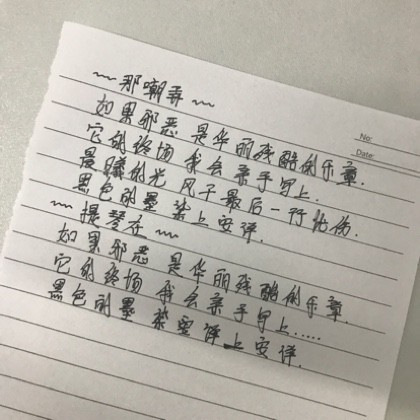 ~~那嘲弄~~
No:
Date:
如果邪恶 是华丽残酷的乐章.
它的终场 我会亲手写上.
晨曦的光 风干最后一行忧伤.
黑色的墨 染上安详.
~~提琴在~~
如果邪恶 是华丽残酷的乐章.
它的终场 我会亲手写上.....
黑色的墨 染安详上安详.